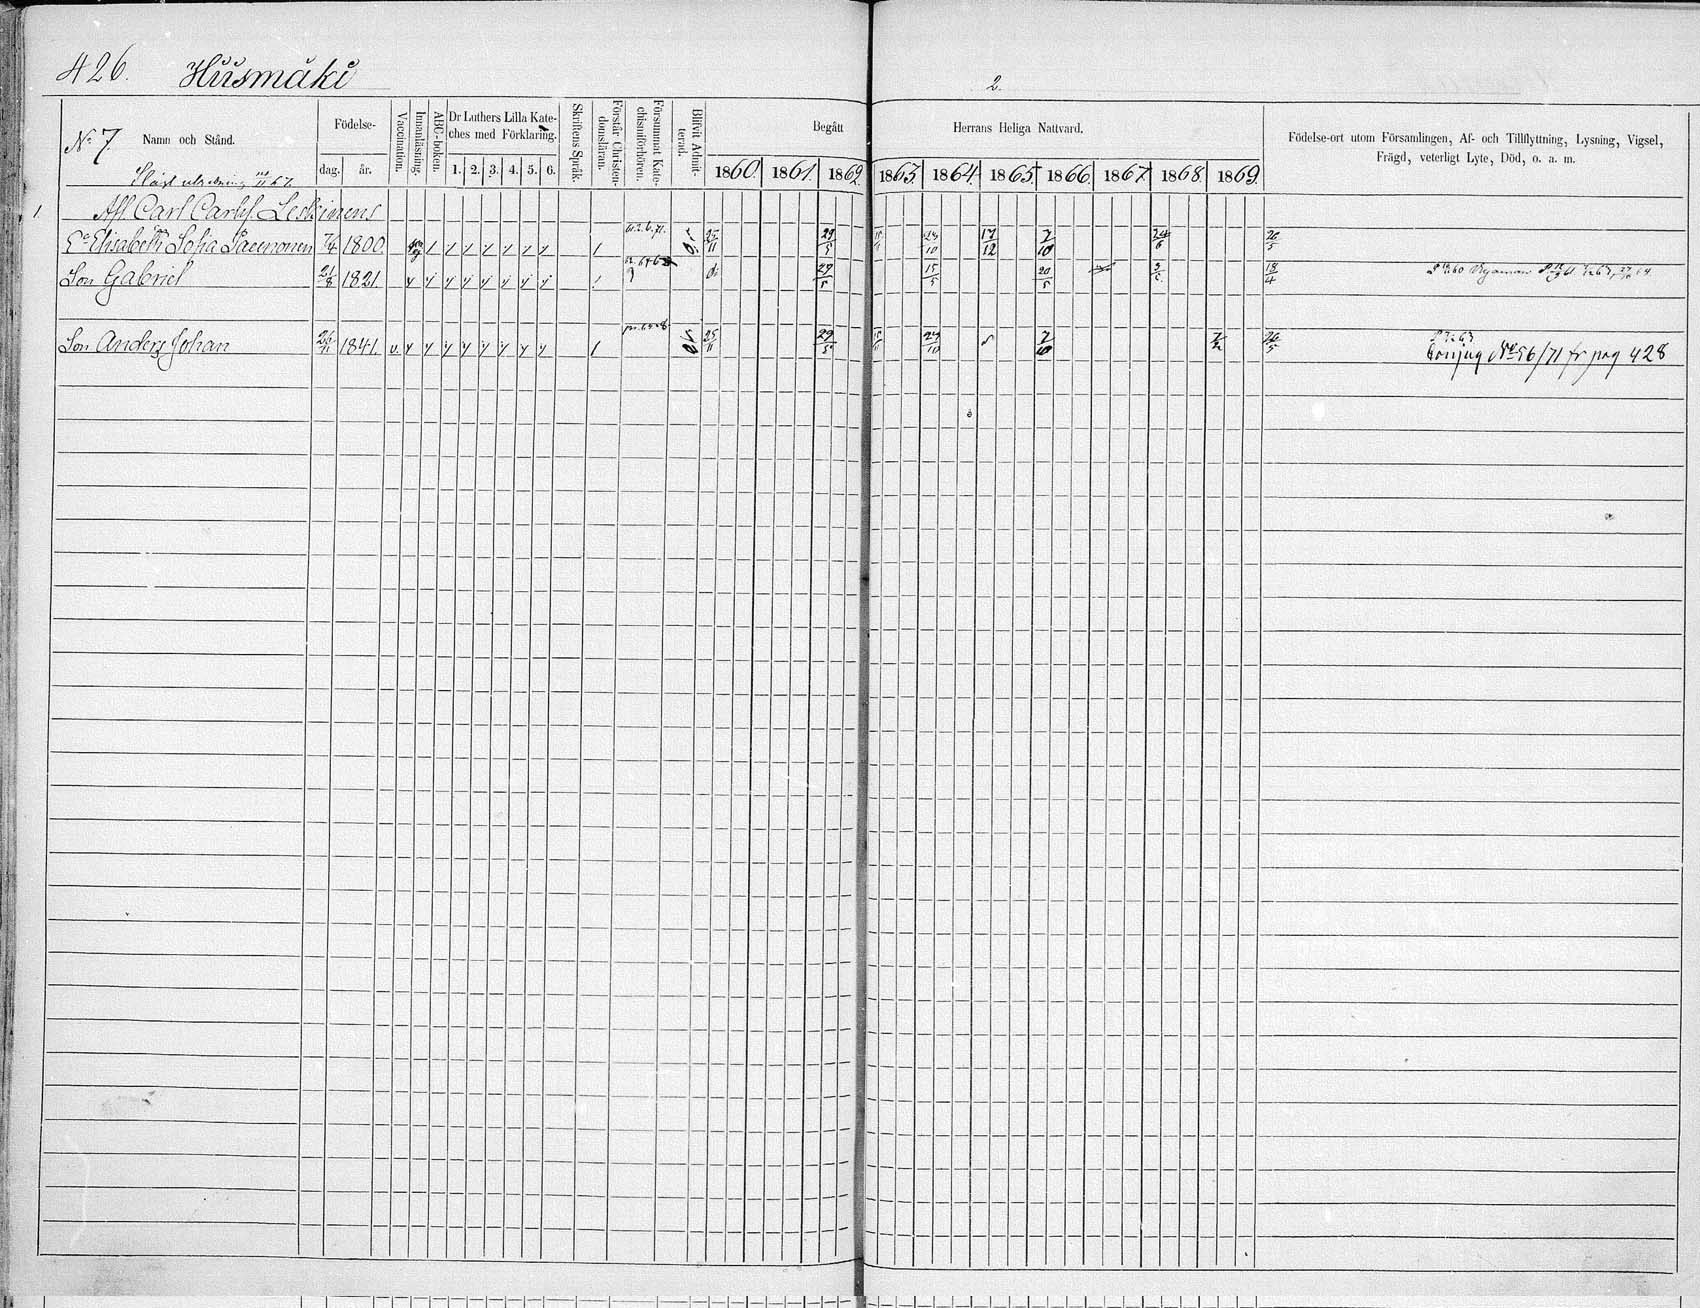 426. Husmäki
2.
No 7. Namn och Stånd.
Födelse-
dag. år.
Vaccination.
Innanläsning.
ABC-boken.
Dr Luthers Lilla Kate-
ches med Förklaring.
1. 2. 3. 4. 5. 6.
Skriftens Språk.
Förstår Christen-
domsläran.
Försummat Kate-
chismiförhören.
Blifvit Admit-
terad.
Begått Herrans Heliga Nattvard.
1860. 1861. 1862. 1863. 1864. 1865. 1866. 1867. 1868. 1869.
Födelse-ort utom Församlingen, Af- och Tillflyttning, Lysning, Vigsel,
Frägd, veterligt Lyte, Död, o. a. m.
1. Afl. Carl Carlss. Leskinens
Ea Elisabeth Sofia Paeenonen 7/4 1800. 25/11 29/5 24/10 17/12 7/10 24/6 20/5
Son Gabriel 21/8 1821. 29/5 15/5 20/5 18/4
Son Anders Johan 26/11 1841. v. 25/11 29/5 29/10 7/10 26/5
Conjug No 56/71 fr pag 428